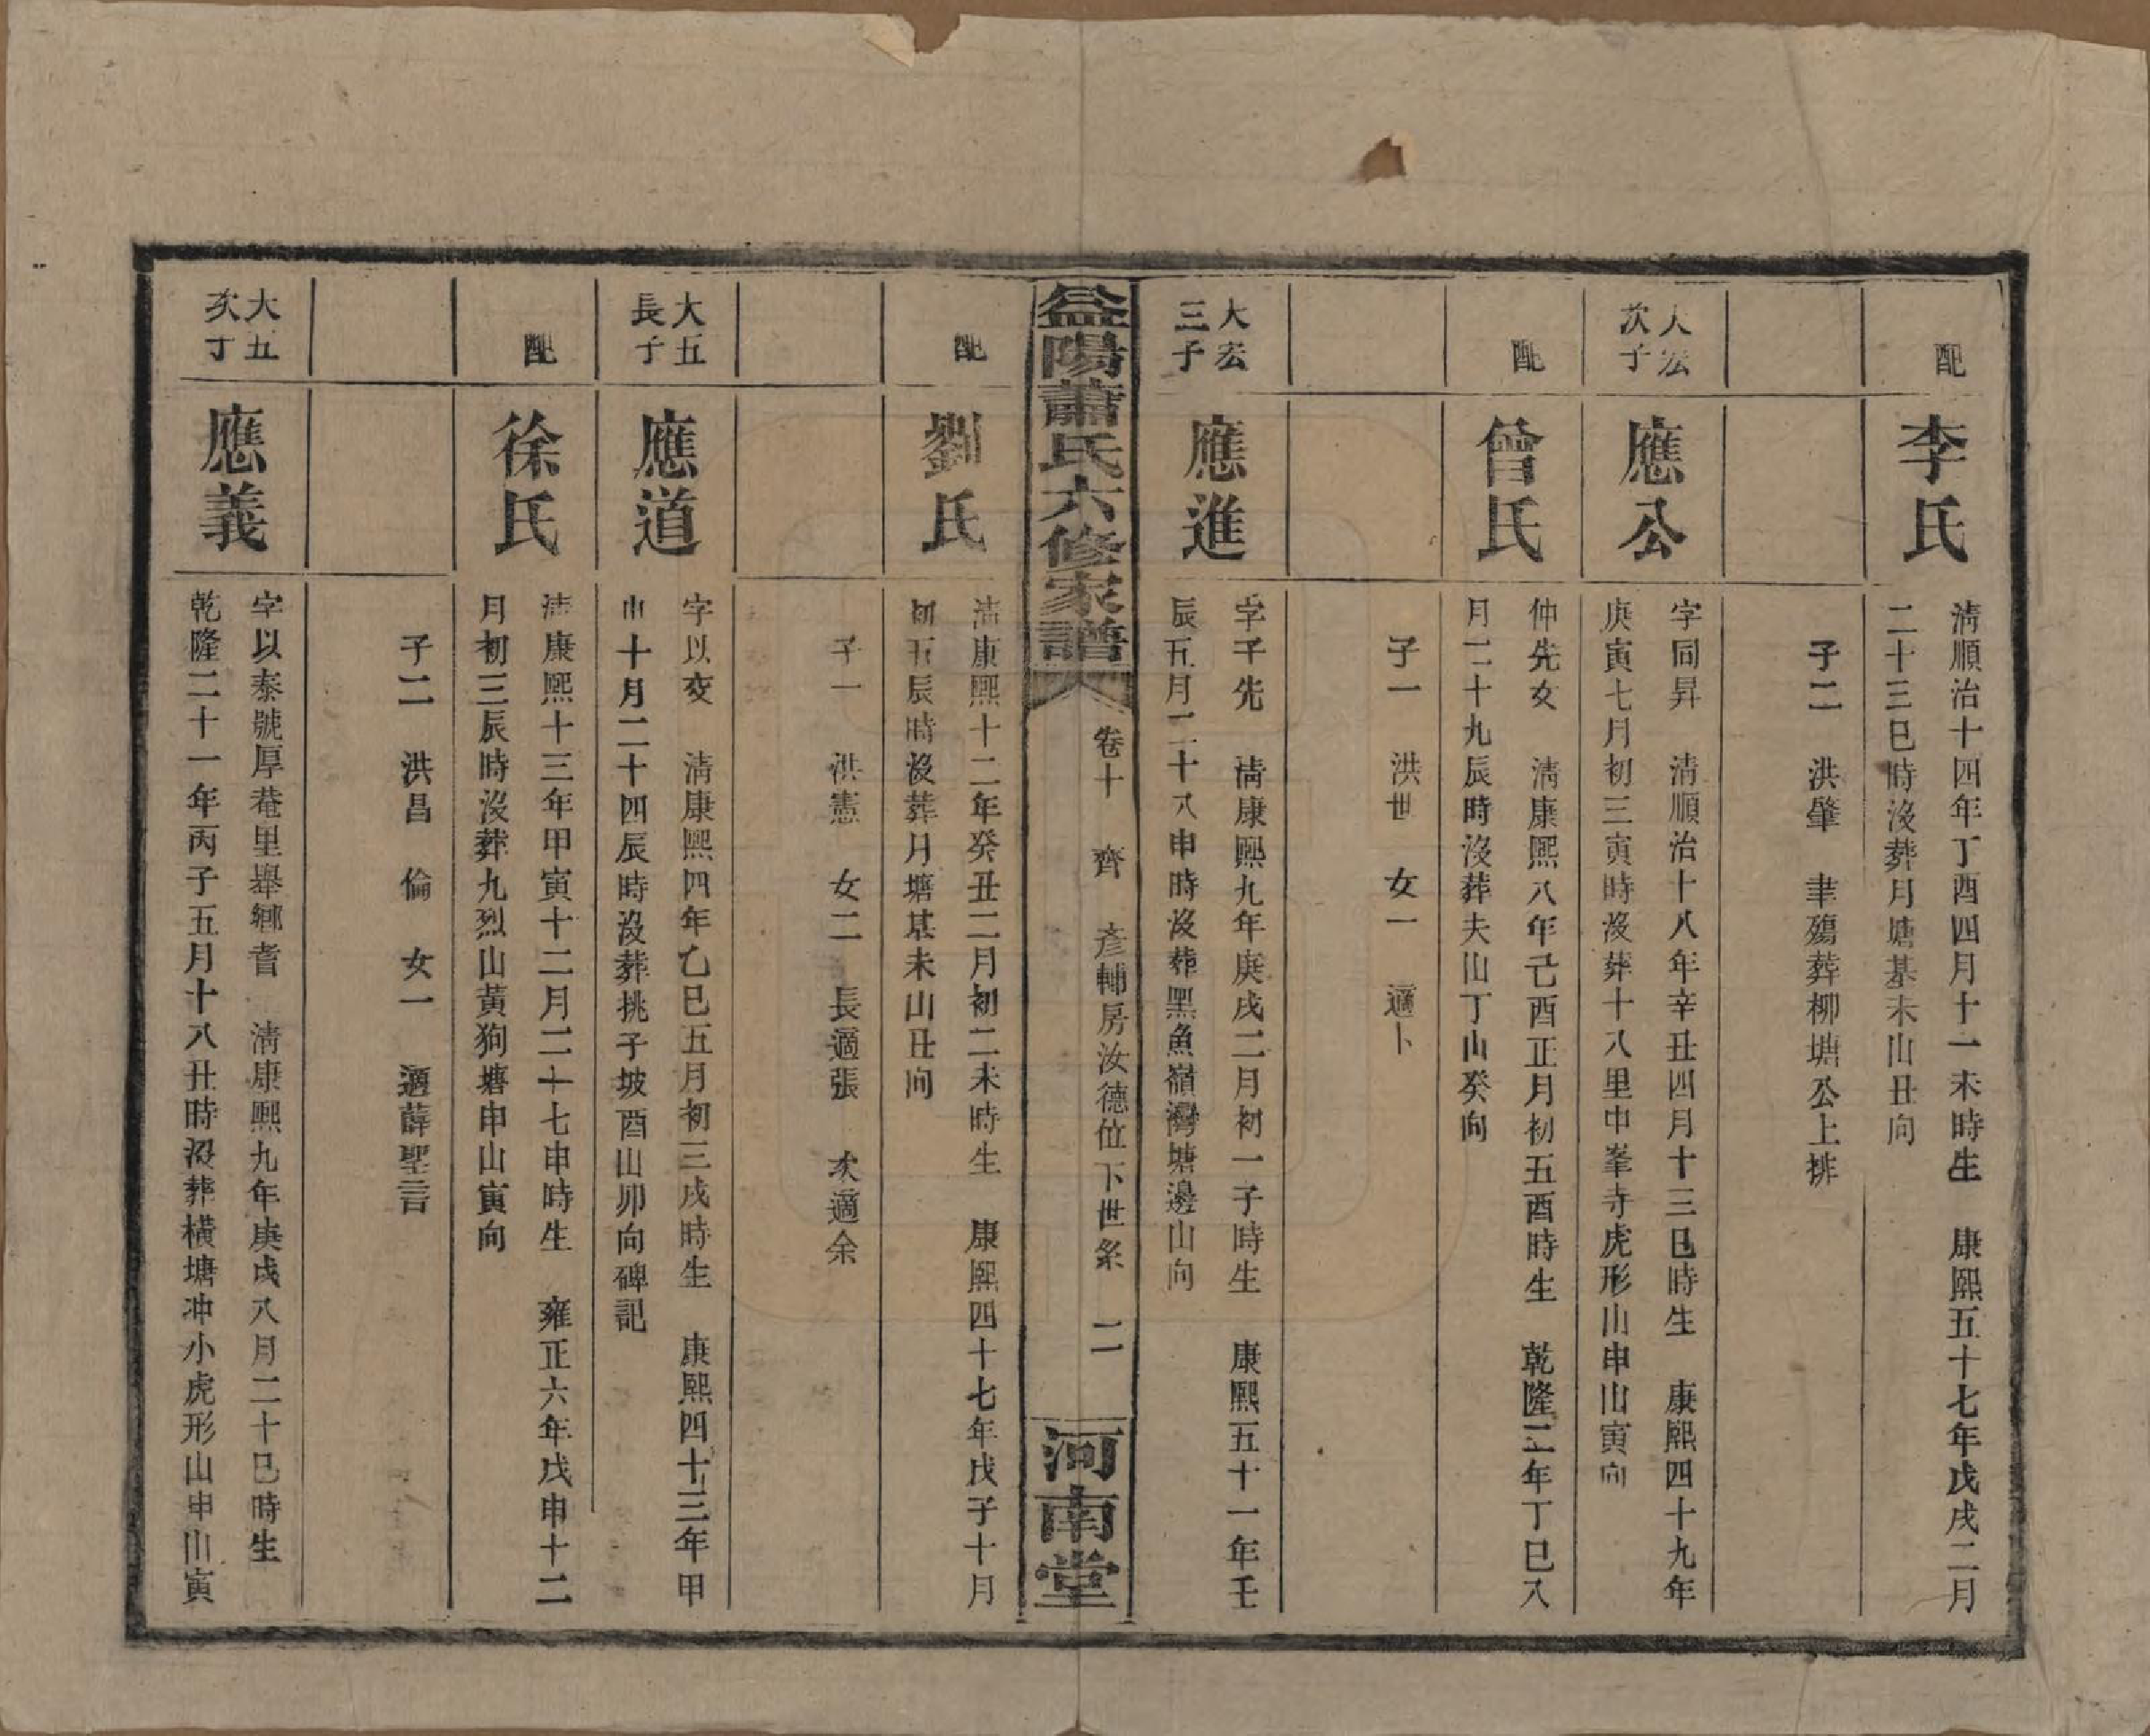 配
李氏
淸順治十四年丁酉四月十一未時生　康熙五十七年戊戌二月
二十三巳時沒葬月塘基未山丑向
子二　洪肇　聿殤葬柳塘公上排
大宏
次子
應公
字同昇　淸順治十八年辛丑四月十三巳時生　康熙四十九年
庚寅七月初三寅時沒葬十八里中峯寺虎形山申山寅向
配
曾氏
仲先女　淸康熙八年己酉正月初五酉時生　乾隆二年丁巳八
月二十九辰時沒葬夫山丁山癸向
子一　洪世　女一　適卜
大宏
三子
應進
字子先　淸康熙九年庚戌二月初一子時生　康熙五十一年壬
辰五月二十八申時沒葬黑魚嶺灣塘邊山向
益陽蕭氏六修家譜
卷十　齊　彥輔房汝德位下世系　二
河南堂
配
劉氏
淸康熙十二年癸丑二月初二未時生　康熙四十七年戊子十月
初五辰時沒葬月塘基未山丑向
子一　洪憲　女二　長適張　次適余
大五
長子
應道
字以交　淸康熙四年乙巳五月初三戌時生　康熙四十三年甲
申十月二十四辰時沒葬挑子坡酉山卯向碑記
配
徐氏
淸康熙十三年甲寅十二月二十七申時生　雍正六年戊申十二
月初三辰時沒葬九烈山黃狗塘申山寅向
子二　洪昌　倫　女一　適薛聖言
大五
次丁
應義
字以泰號厚菴里舉鄕耆　淸康熙九年庚戌八月二十巳時生
乾隆二十一年丙子五月十八丑時沒葬橫塘冲小虎形山申山寅